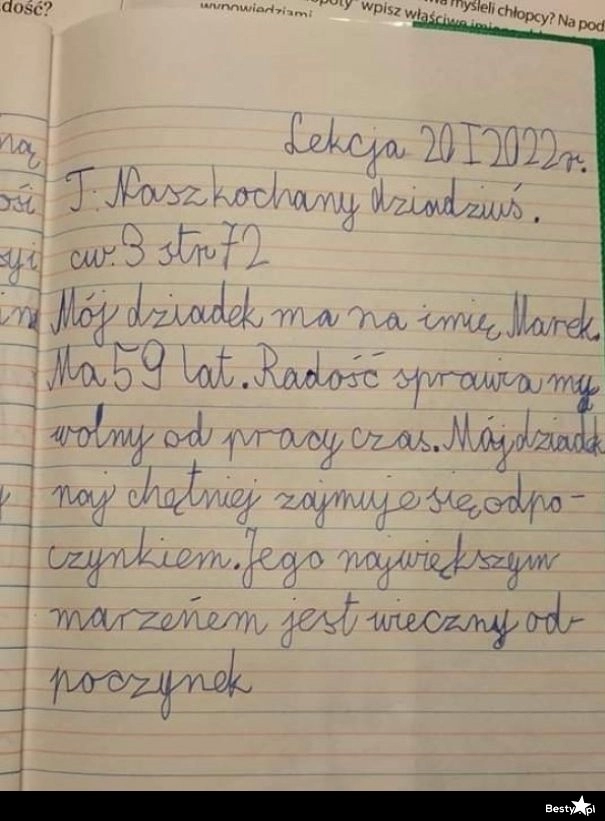 dość?
wypowiedziami
wpisz właściwe imiona
myśleli chłopcy? Na pod
ną
ości
syi
Lekcja 20 I 2022r.
T: Nasz kochany dziadziuś.
ćw. 3 str 72
Mój dziadek ma na imię Marek.
Ma 59 lat. Radość sprawia my
wolny od pracy czas. Mój dziadek
naj chętniej zajmuje się odpo-
czynkiem. Jego największym
marzeńem jest wieczny od-
poczynek
Besty.pl